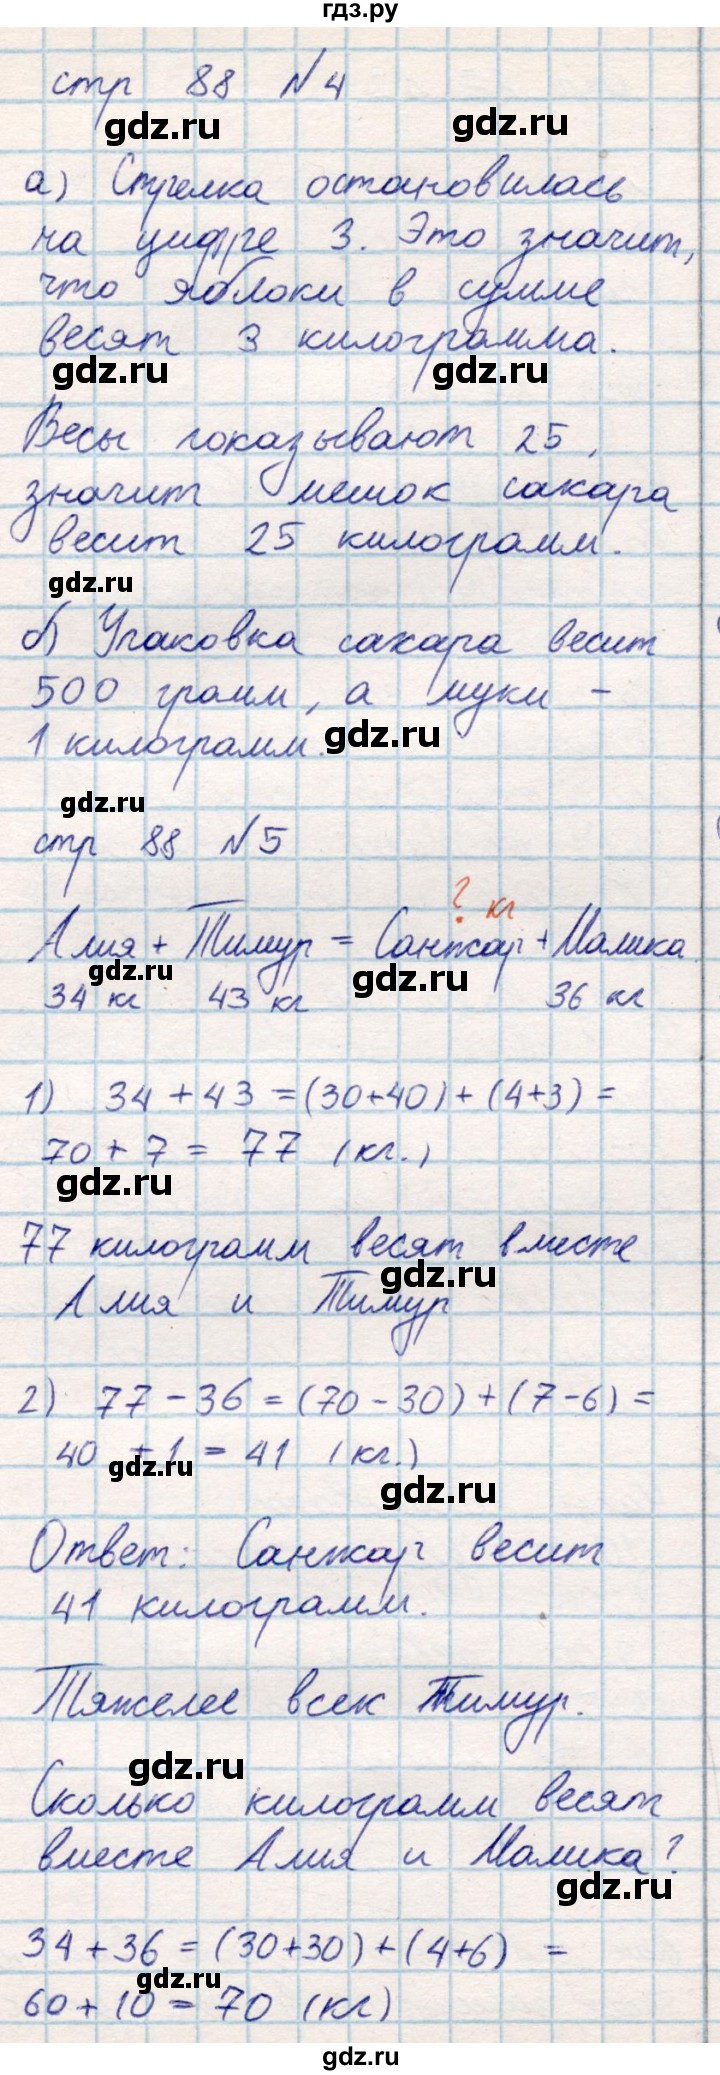 гдз.ру
стр 88 №4
gdz.ru gdz.ru
а) Стрелка остановилась
на цифре 3. Это значит,
что яблоки в сумме
весят 3 килограмма.
gdz.ru gdz.ru
Весы показывают 25,
значит мешок сахара
весит 25 килограмм.
gdz.ru
б) Упаковка сахара весит
500 грамм, а муки –
1 килограмм.
gdz.ru
gdz.ru
стр 88 №5
? кг
Алия + Тимур = Санжар + Малика
gdz.ru gdz.ru
34 кг 43 кг 36 кг
1) 34 + 43 = (30+40) + (4+3) =
70 + 7 = 77 (кг.)
gdz.ru
77 килограмм весят вместе
gdz.ru
Алия и Тимур
2) 77 - 36 = (70 - 30) + (7 - 6) =
40 + 1 = 41 (кг.)
gdz.ru gdz.ru
Ответ: Санжар весит
41 килограмм.
Тяжелее всех Тимур.
gdz.ru
Сколько килограмм весят
вместе Алия и Малика?
gdz.ru
34 + 36 = (30+30) + (4+6) =
gdz.ru
60 + 10 = 70 (кг)
gdz.ru